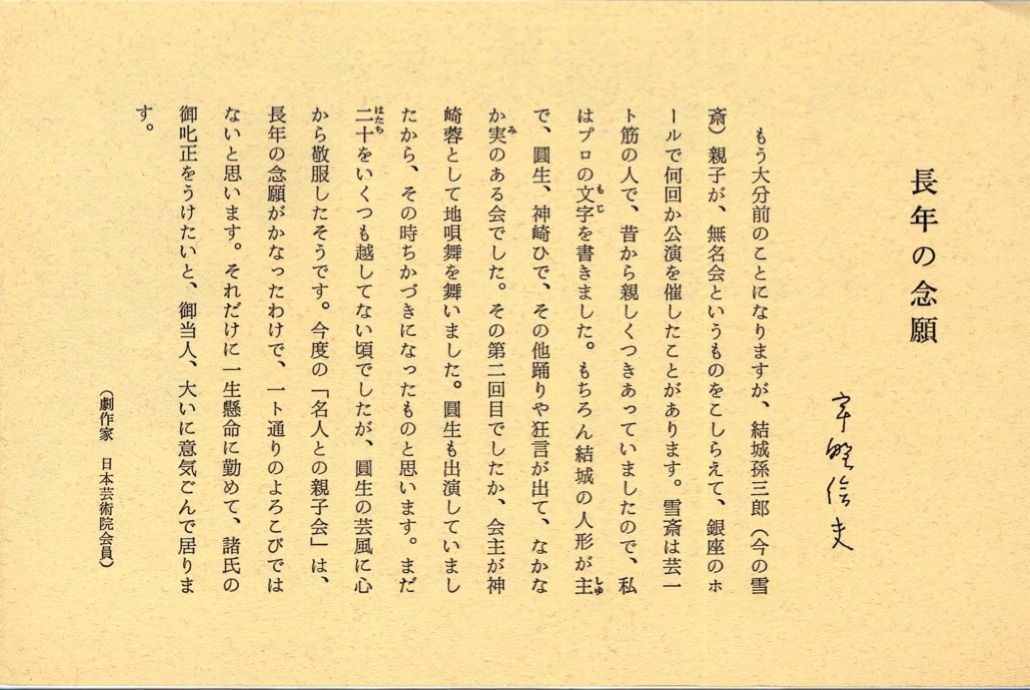 長年の念願
宇野信夫
もう大分前のことになりますが、結城孫三郎（今の雪
斎）親子が、無名会というものをこしらえて、銀座のホ
ールで何回か公演を催したことがあります。雪斎は芸一
ト筋の人で、昔から親しくつきあっていましたので、私
はプロの文字を書きました。もちろん結城の人形が主
で、圓生、神崎ひで、その他踊りや狂言が出て、なかな
か実のある会でした。その第二回目でしたか、会主が神
崎蓉として地唄舞を舞いました。圓生も出演していまし
たから、その時ちかづきになったものと思います。まだ
二十をいくつも越してない頃でしたが、圓生の芸風に心
から敬服したそうです。今度の「名人との親子会」は、
長年の念願がかなったわけで、一ト通りのよろこびでは
ないと思います。それだけに一生懸命に勤めて、諸氏の
御叱正をうけたいと、御当人、大いに意気ごんで居りま
す。
（劇作家　日本芸術院会員）